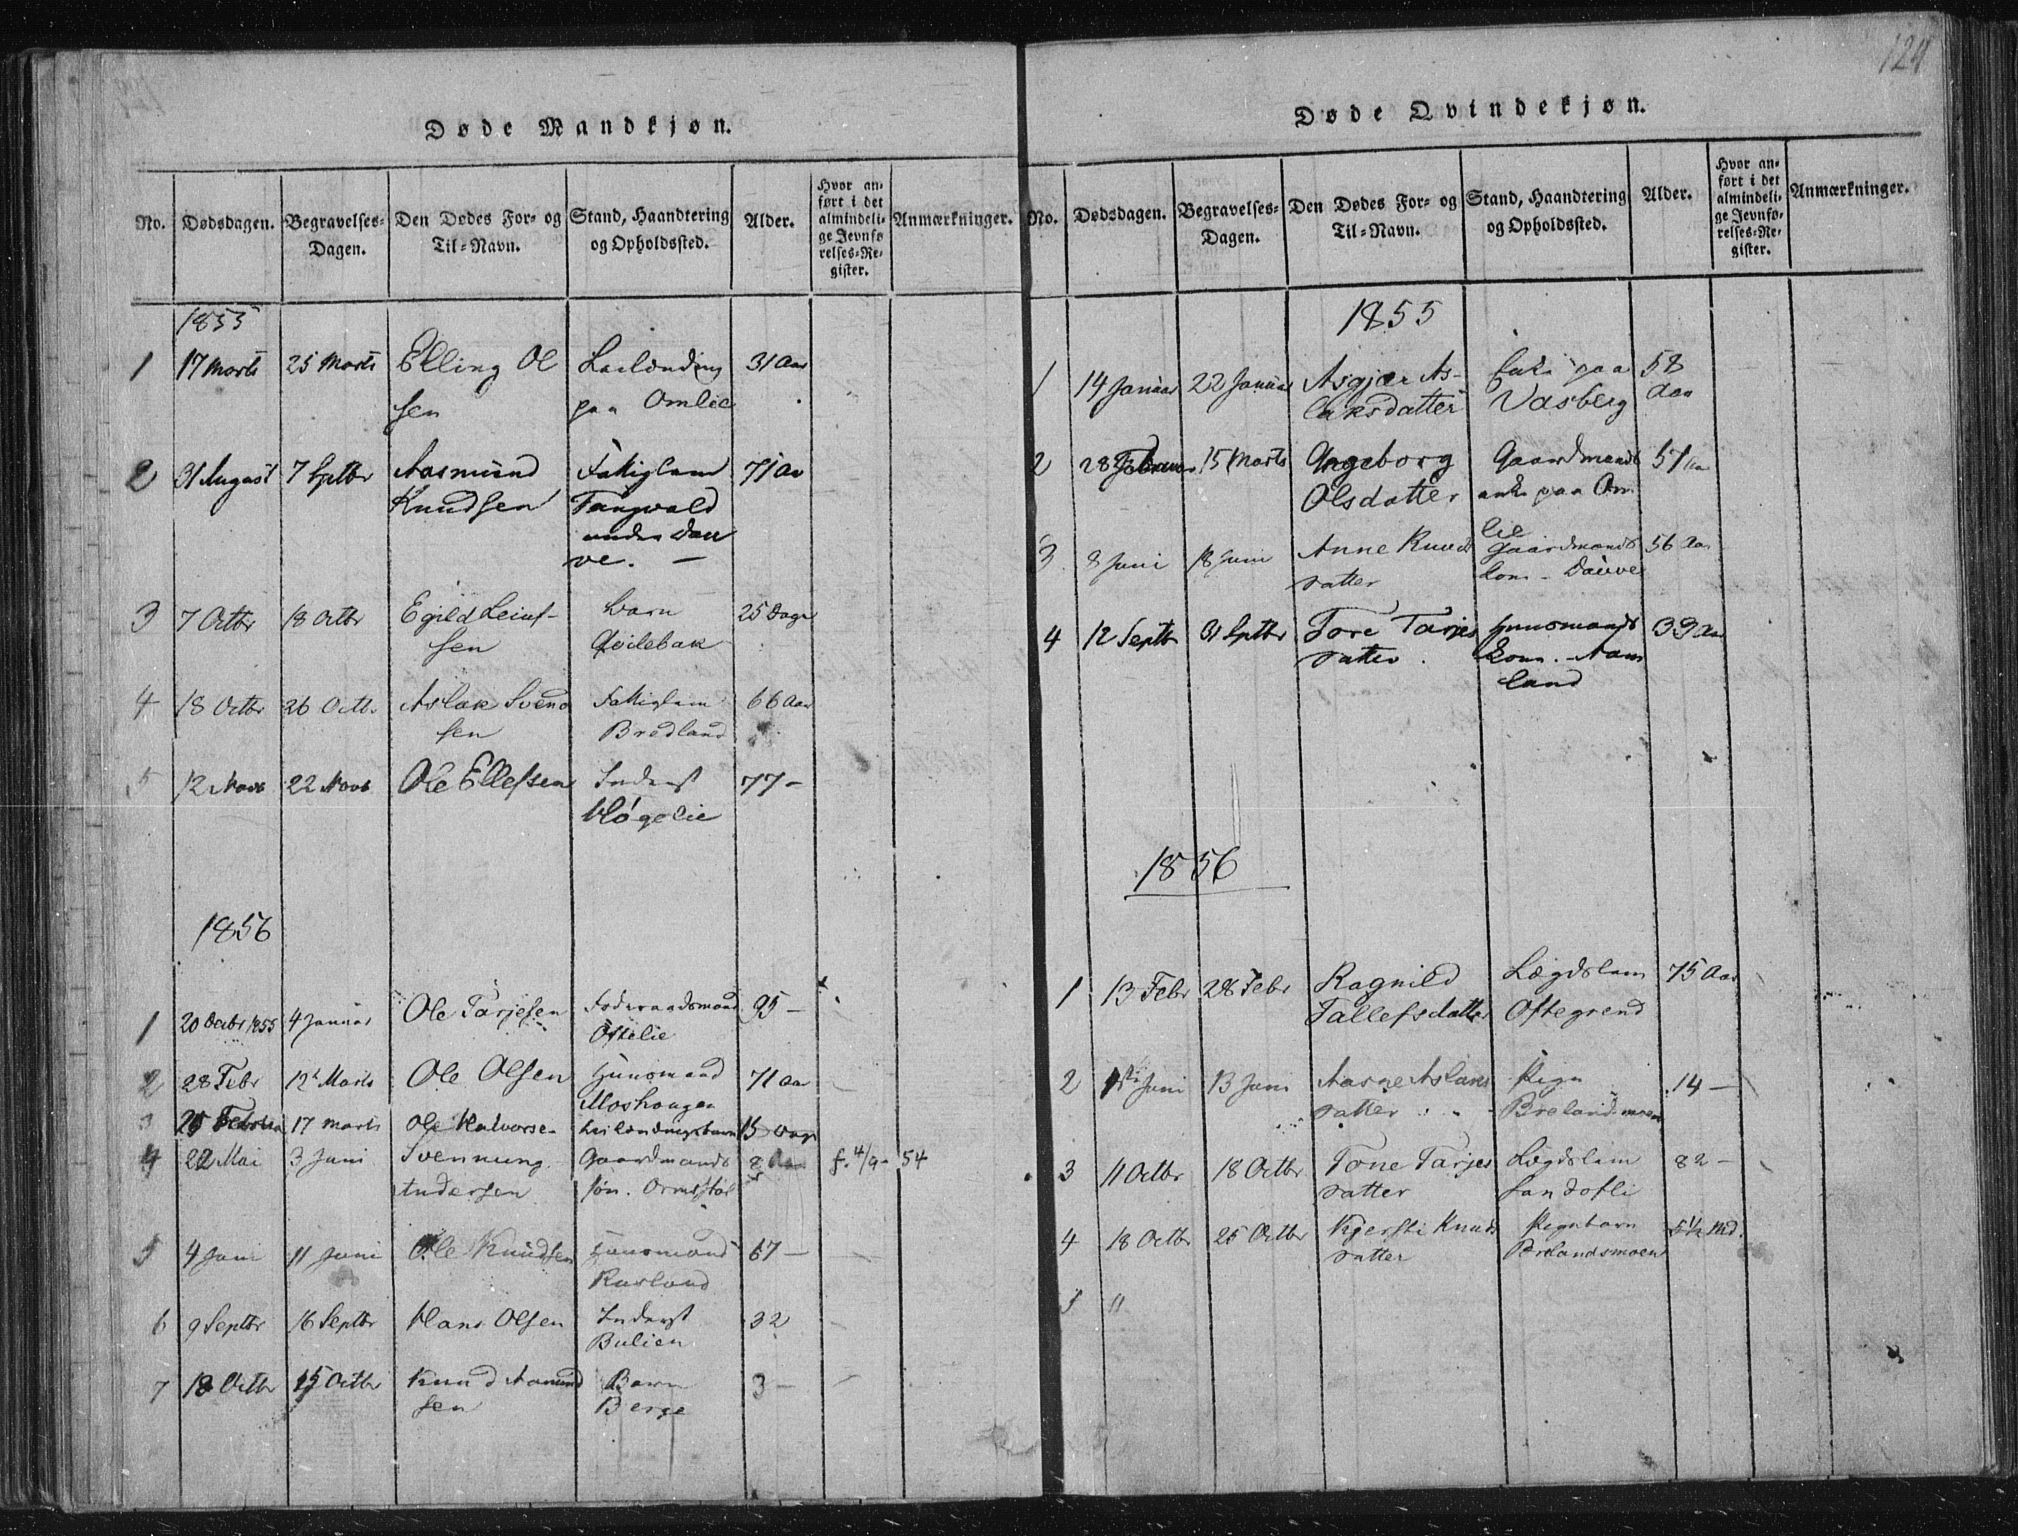 124
Døde Mandkjøn.
No. Dødsdagen. Begravelses-Dagen. Den Dødes For- og Til-Navn. Stand, Haandtering og Opholdssted. Alder. Hvor anført i det almindelige Jevnførelses-Register. Anmærkninger.
1855
1 17 Marts 25 Marts Elling Ol 31 Aar
sen paa Omlie
2 31 August 7 Septbr Aasmund Fattiglem 71 Aar
Knudsen Tangvald
under Dau
ve. —
3 7 Octbr 18 Octbr Egild Leifs- barn 25 Dage
sen Qvilebak
4 18 Octbr 26 Octb. Aslak Svend Fattiglem 66 Aar
sen Bredland
5 12 Novb 22 Novb Ole Ellefsen Inderst 77 —
Høgelie
1856
1 20 Decbr 1855 4 Januar Ole Tarjesen Føderaadsmand 95 —
Oftelie
2 28 Febr 12 Marts Ole Olsen Huusmand 71 Aar
Moshougen
3 17 Marts Ole Halvorse- Leilændingsbarn 15 Dage
4 22 Mai 3 Juni Svennung Gaardmands 8 Aar f. 4/9 - 54
Andersen søn. Ormstøl
5 4 Juni 11 Juni Ole Knudsen Huusmand 67 —
Rusland
6 9 Septbr 16 Septbr Hans Olsen Inderst 32
Bulien
7 18 Octbr 15 Octbr Knud Aanund Barn 3 —
sen Berge
Døde Qvindekjøn.
No. Dødsdagen. Begravelses-Dagen. Den Dødes For- og Til-Navn. Stand, Haandtering og Opholdssted. Alder. Hvor anført i det almindelige Jevnførelses-Register. Anmærkninger.
1855
1 14 Januar 22 Januar Asgjær As- Enke paa 58
laksdatter Vasberg Aar
2 28 Februar 15 Marts Ingeborg Gaardmands 51 Aar
Olsdatter enke paa Om
lie
3 8 Juni 18 Juni Anne Knuds Gaardmands 56 Aar
datter kone - Dauve
4 12 Septbr Septbr Tore Tarjes Huusmands 33 Aar
datter. kone. - Aam
land
1856
1 13 Febr 28 Febr Ragnild Lægdslem 75 Aar
Tallefsdatter Oftegrend
2 1ste Juni 13 Juni Aasge Aslaks Pige 14 —
datter Brelandsmoen
3 11 Octbr 18 Octbr Tone Tarjes Lægdslem 82 —
datter Sandofli
4 18 Octbr 25 Octbr Kjersti Knuds Pigebarn 5½ Md.
datter Brelandsmoen
5 "